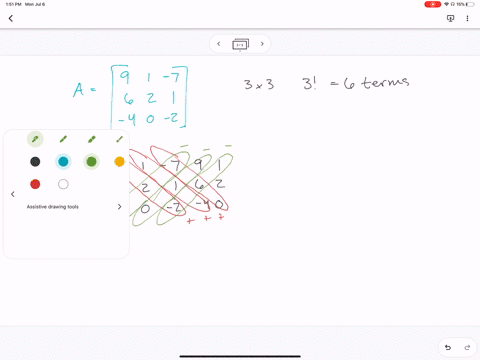 1:51 PM Mon Jul 6
15%
A = [9 1 -7
6 2 1
-4 0 -2]
3 × 3 3! = 6 terms
- - -
1 -7 9 1
2 1 6 2
0 -2 -4 0
+ + +
Assistive drawing tools